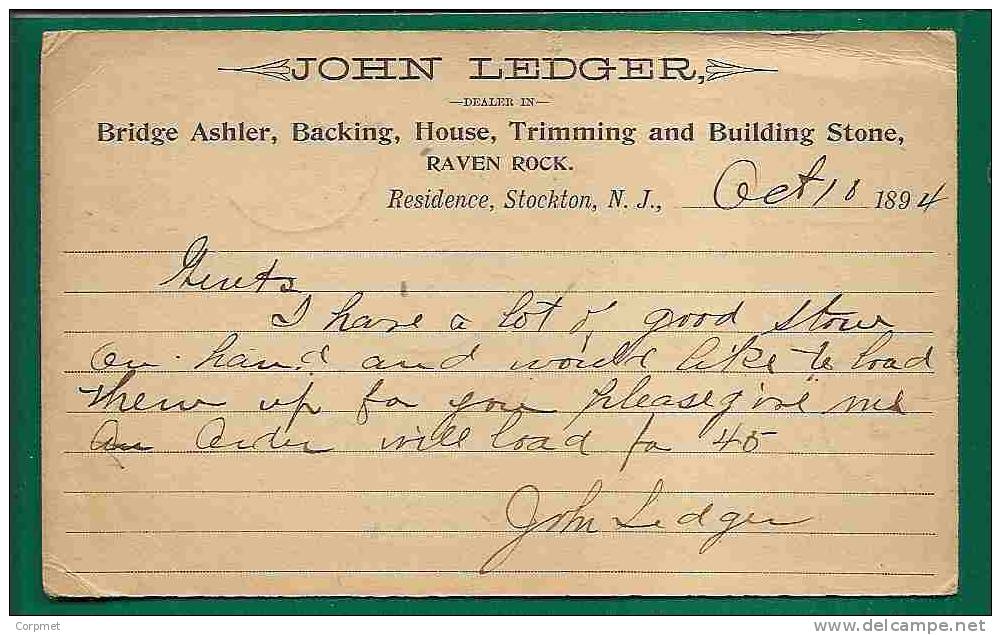 JOHN LEDGER,
—DEALER IN—
Bridge Ashler, Backing, House, Trimming and Building Stone,
RAVEN ROCK.
Residence, Stockton, N. J., Oct 10 1894
Gents
I have a lot of good stone
on hand and would like to load
them up for you please give me
an order will load for 45
John Ledger
Copyright : Corpmet
www.delcampe.net